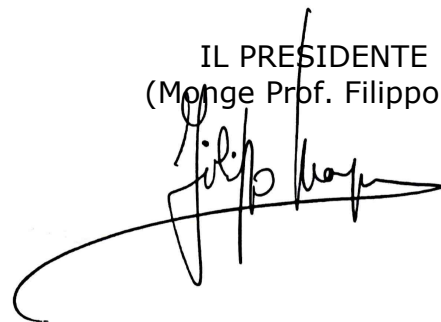 IL PRESIDENTE
(Monge Prof. Filippo
Filippo Monge